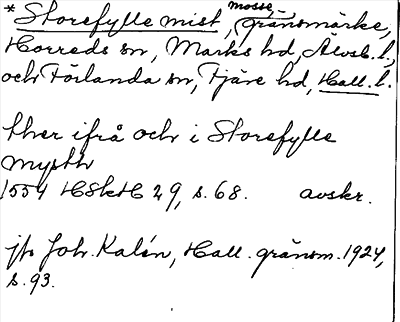 * Storefylle mist, mosse, gränsmärke,
Horreds sn, Marks hd, Älvsb. l.,
och Förlanda sn, Fjäre hd, Hall. l.
ther ifrå och i Storefylle
mysth
1554 HSkH 29, s. 68. avskr.
jfr Joh. Kalén, Hall. gränsm. 1924,
s. 93.